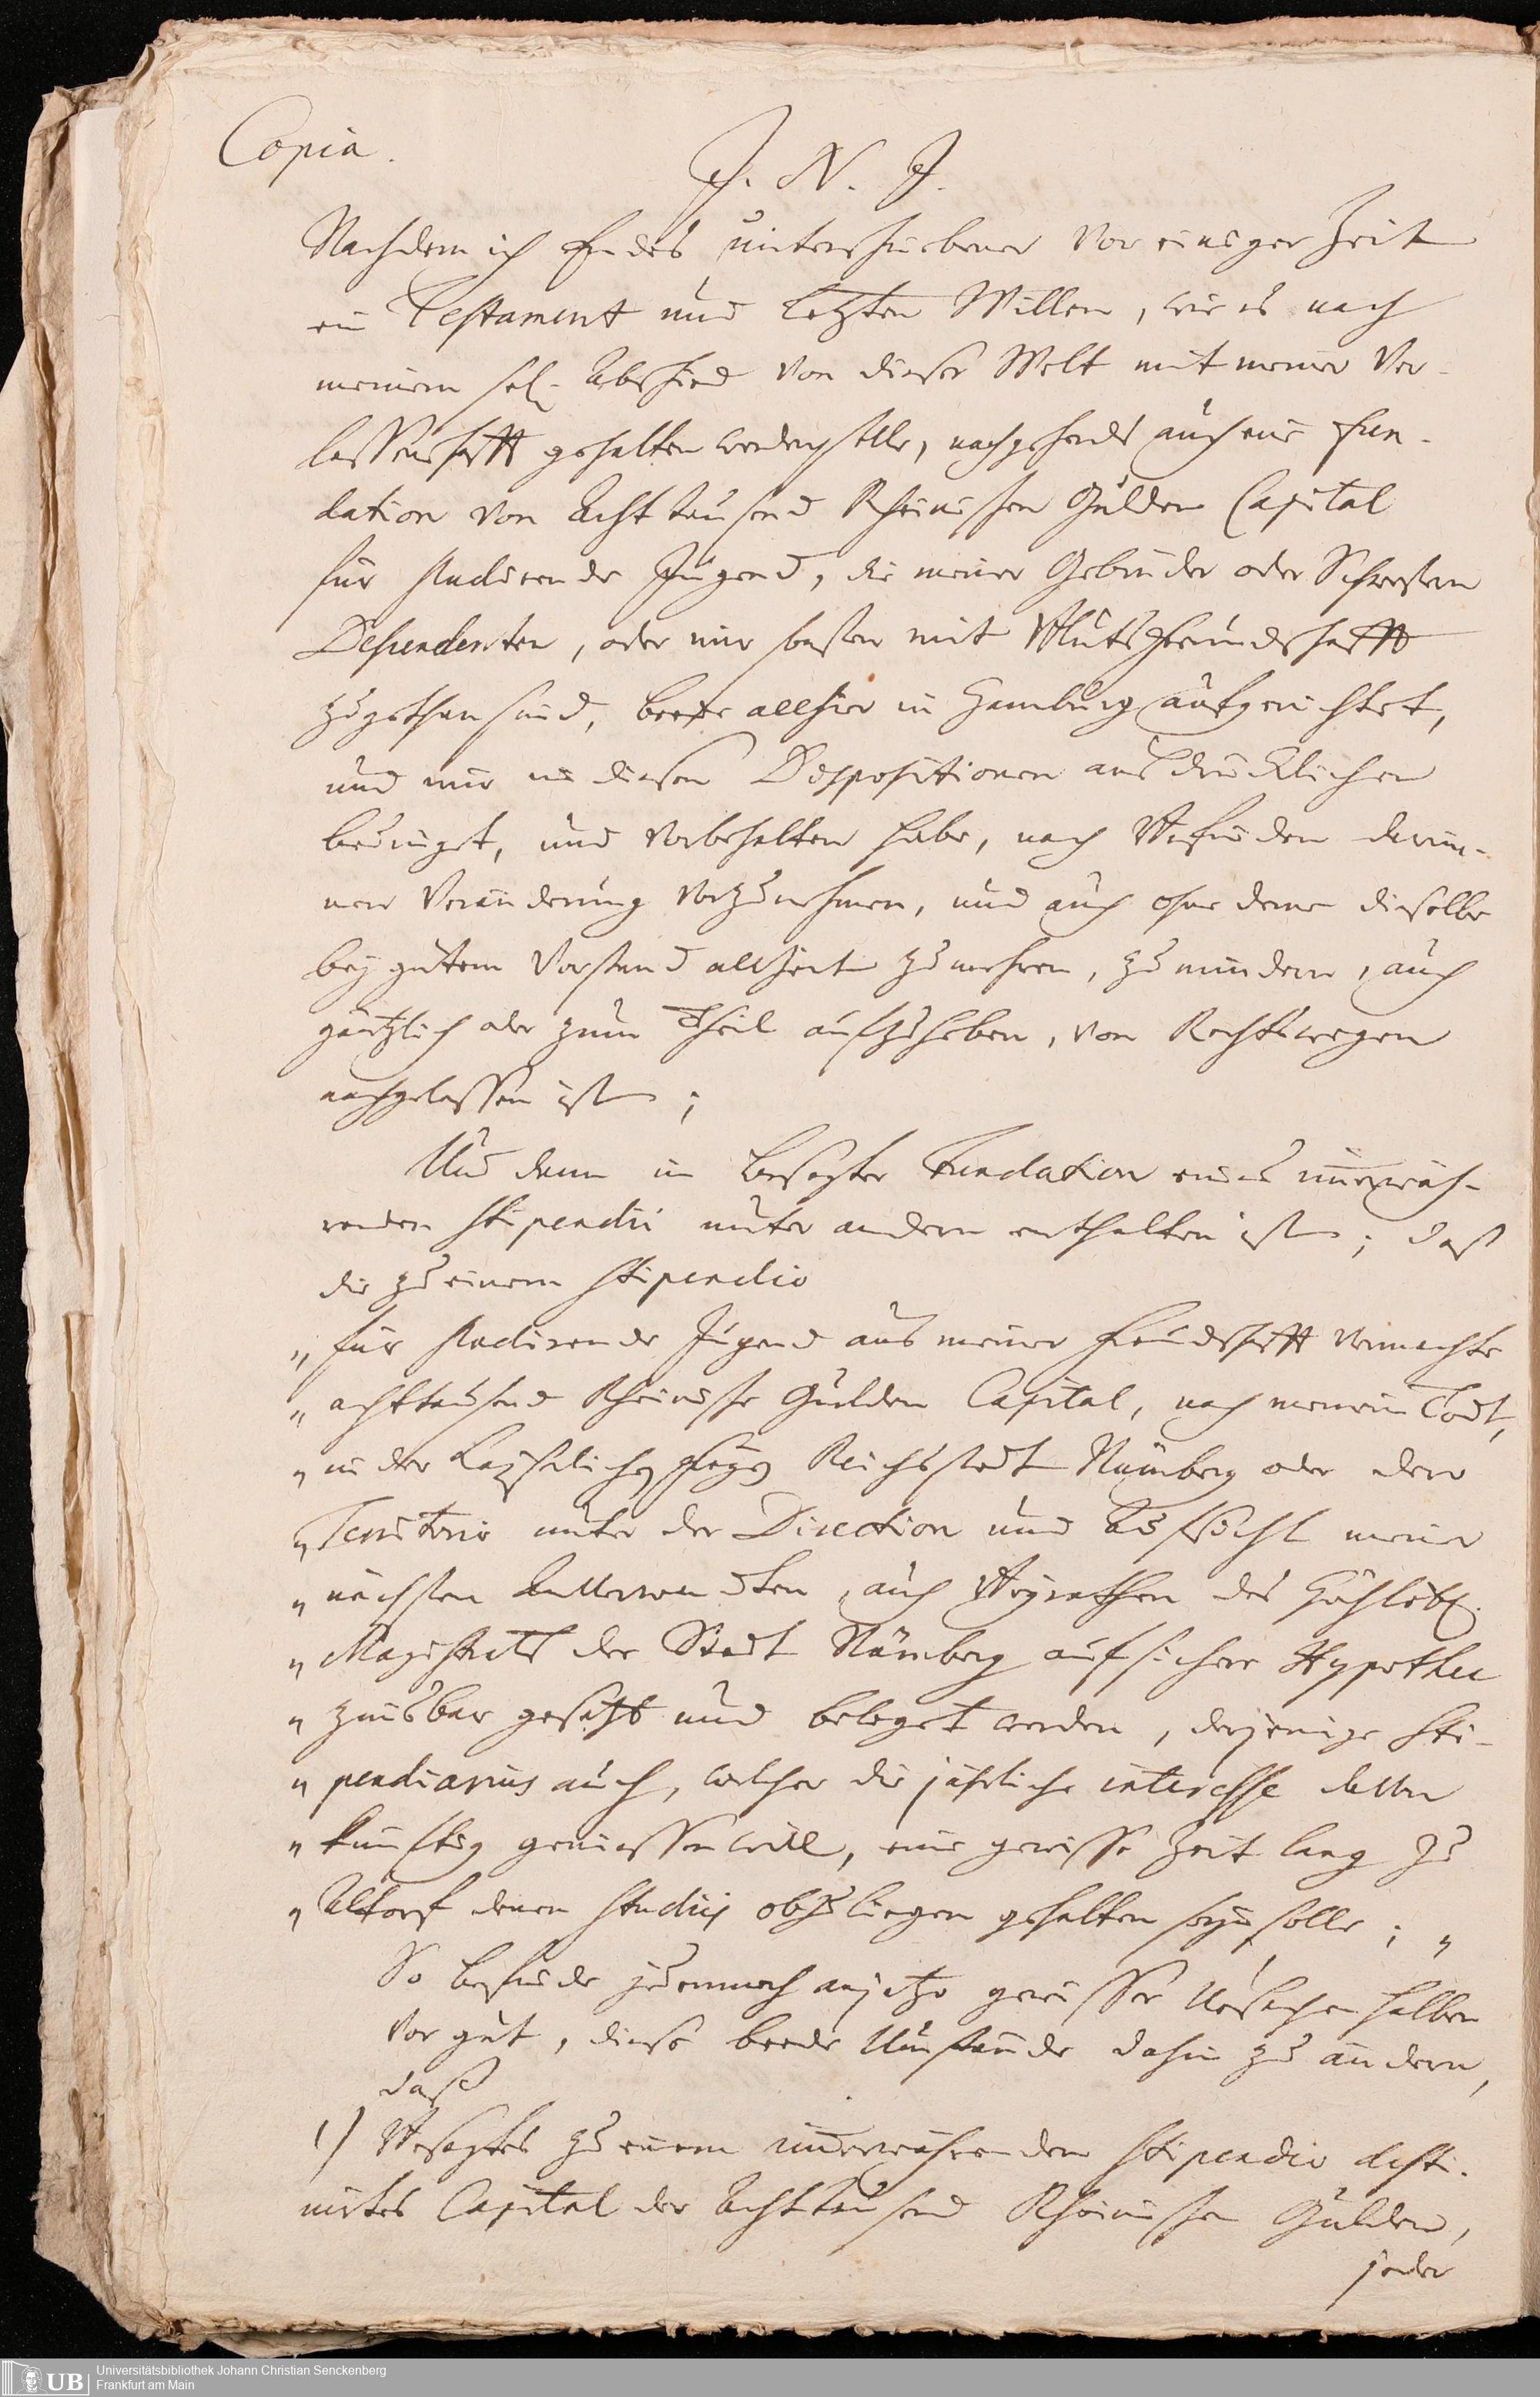 Copia.
J. N. J.
Nachdem ich Endes unterschriebener vor einiger Zeit
ein Testament und letzten Willen, wie es nach
meinem sel. Abschied von dieser Welt mit meiner Ver-
lassenschafft gehalten werden solle, nachgehends auch eine Fun-
dation von Acht tausend Rheinischen Gulden Capital
für studirende Jugend, die meiner Gebrüder oder Schwestern
Descendenten, oder mir sonsten mit Blutsfreundschafft
zugethan sind, beede allhier in Hamburg aufgerichtet,
und mir in diesen Dispositionen ausdrücklichen
bedinget, und vorbehalten habe, nach Befinden darin-
nen Veränderung vorzunehmen, und auch ohne deme dieselbe
bey gutem Verstand allzeit zu mehren, zu mindern, auch
gäntzlich oder zum Theil aufzuheben, von Rechtswegen
nachgelassen ist;
Und dann in besagter Fundation eines immerwäh-
renden Stipendii unter andern enthalten ist; daß
die zu einem Stipendio
„ für studirende Jugend aus meiner Freundschafft vermachte
„ achttausend Rheinische Gulden Capital, nach meinem Todt,
„ in der Kayserlichen freyen Reichsstadt Nürnberg oder dero
„ Territorio unter der Direction und Aufsicht meiner
„ nächsten Anverwandten, auch Beyrathen des Hochlöbl.
„ Magistrats der Stadt Nürnberg auf sichere Hypothec
„ zinsbar gesetzt und beleget werden, derjenige Sti-
„ pendiarius auch, welcher die jährliche interesse davon
„ künfftig geniessen will, eine gewisse Zeit lang zu
„ Altorf denen Studiis obzuliegen gehalten seyn solle; „
So befinde jedennoch anjetzo gewisser Ursachen halben
vor gut, diese beede Umstände dahin zu ändern,
daß
1) Besagtes zu einem immerwährenden Stipendio desti-
nirtes Capital der Achttausend Rheinischen Gulden,
jeder
Universitätsbibliothek Johann Christian Senckenberg
Frankfurt am Main
UB